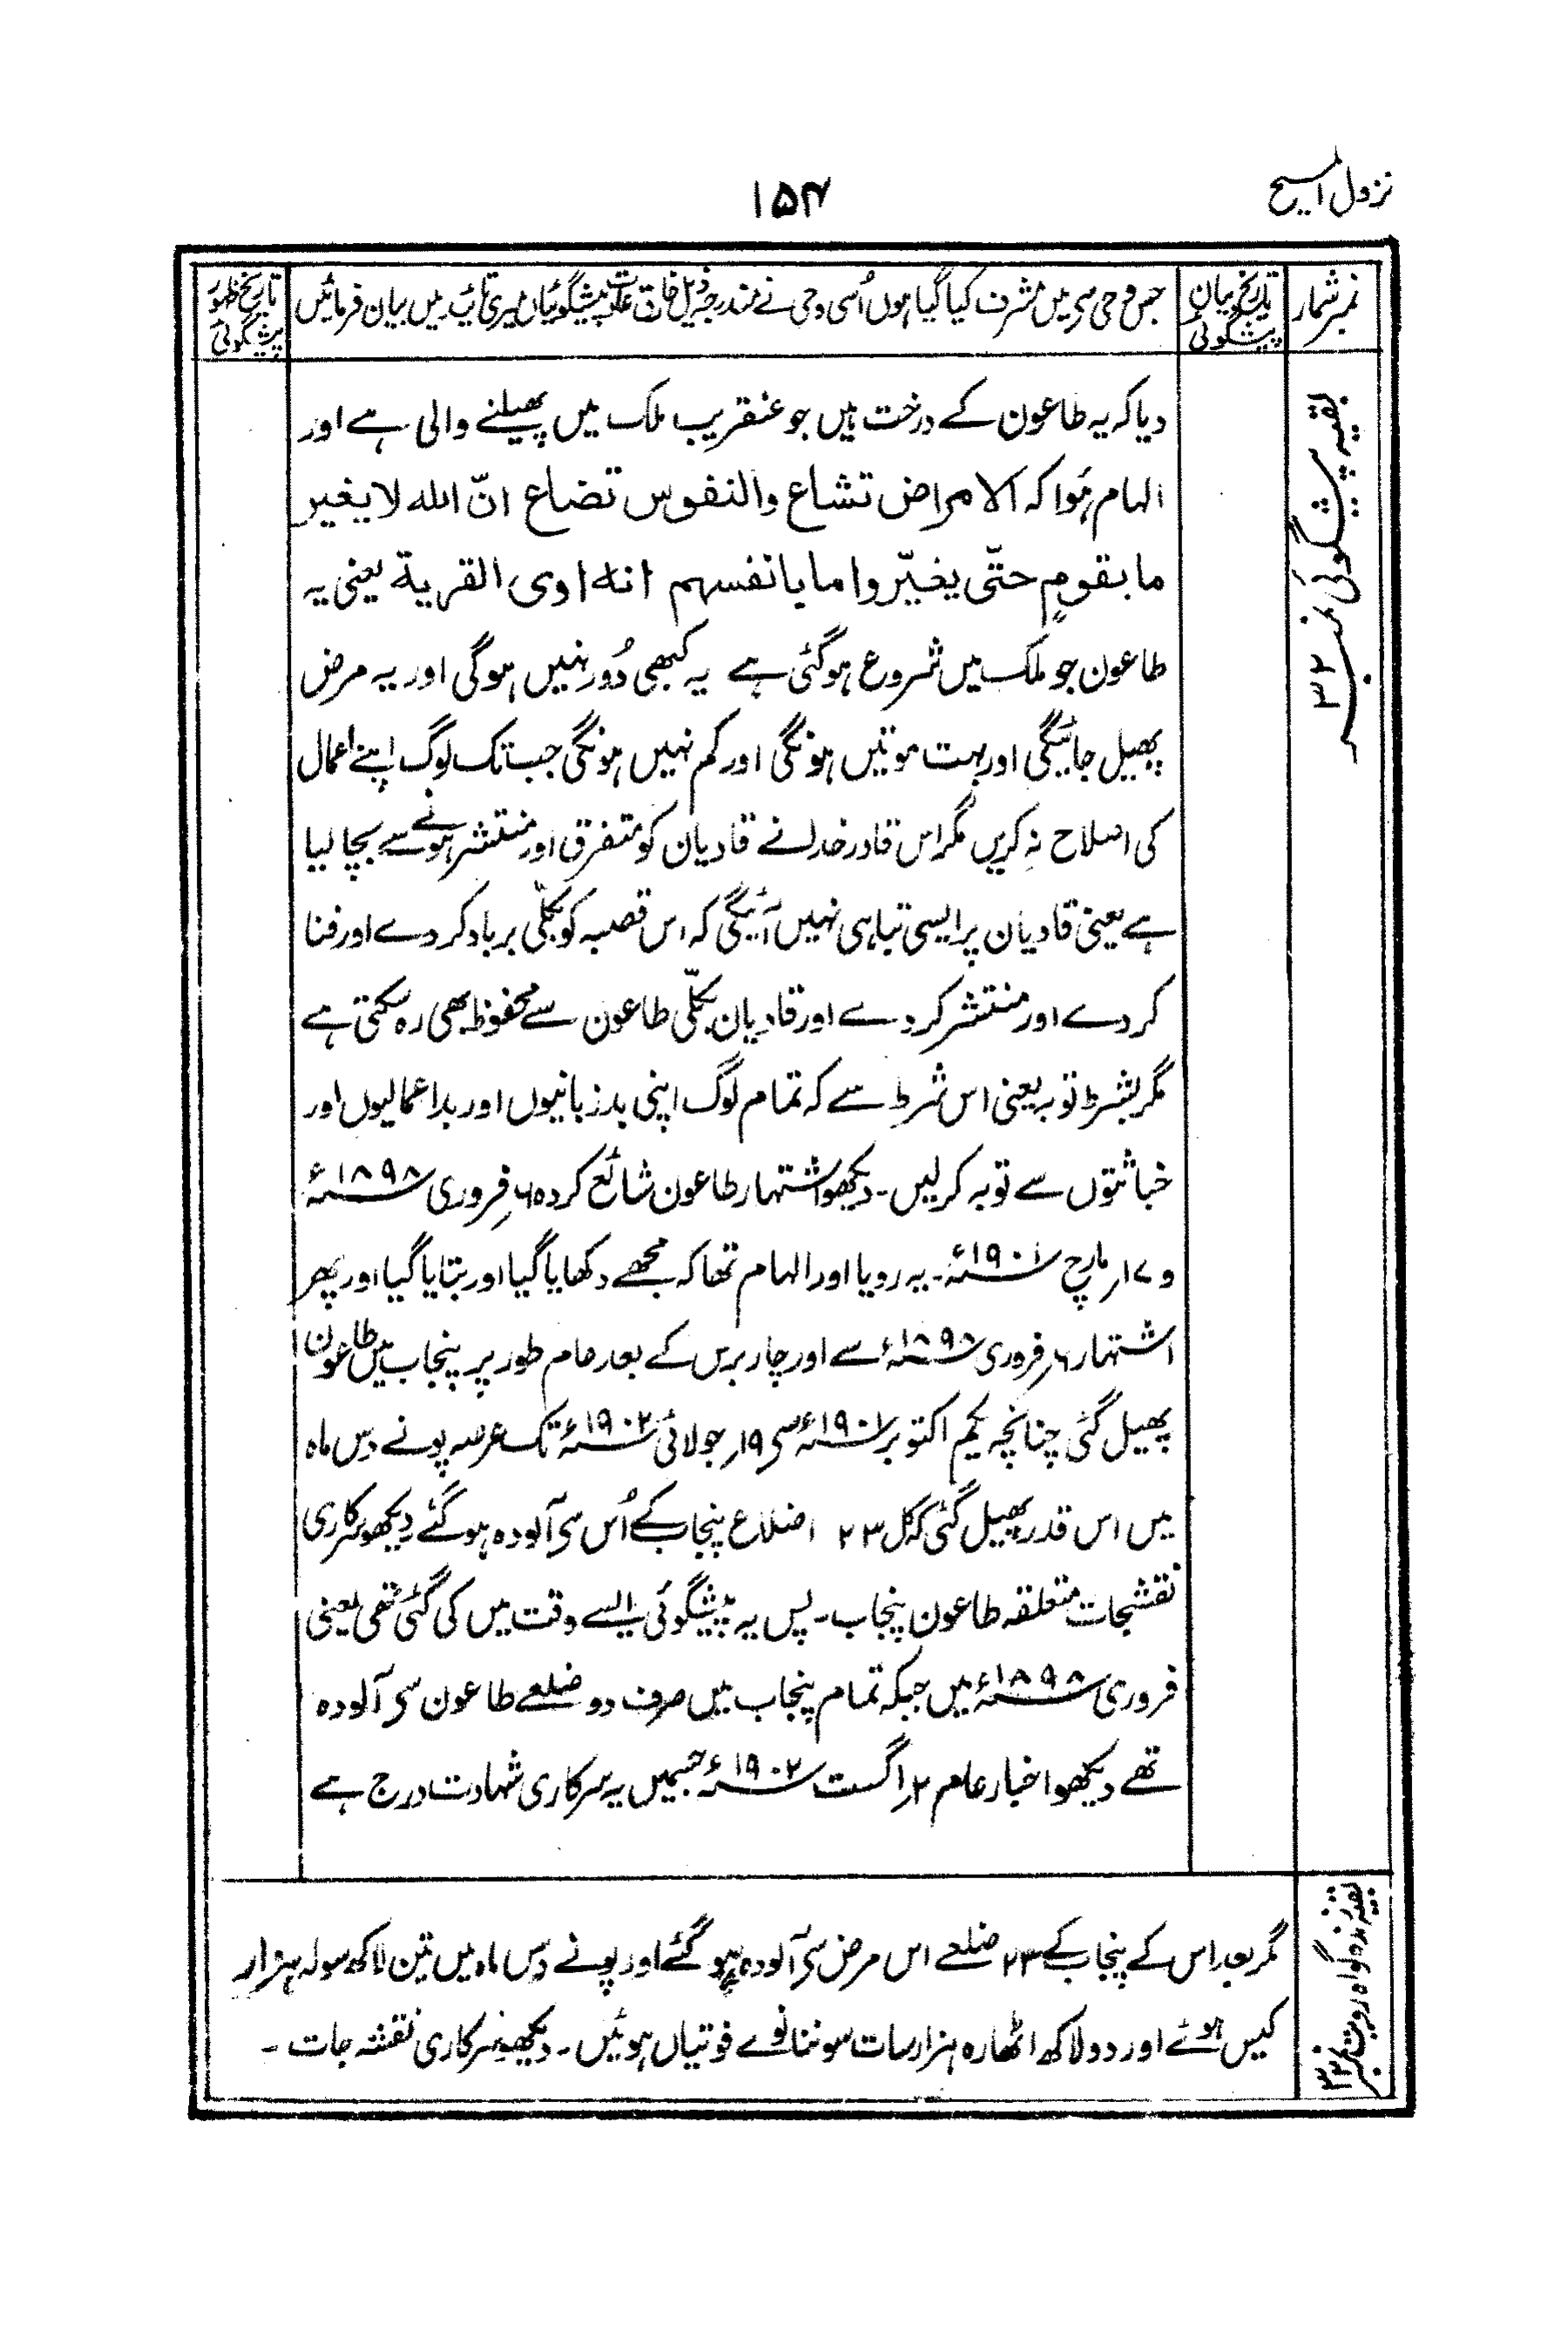 نزول المسیح
۱۵۴
نمبر شمار
تاریخ بیان پیشگوئی
جس وحی سی میں مشرف کیا گیا ہوں اُسی وحی نے مندرجہ ذیل خارق عادت پیشگوئیاں میری تائید میں بیان فرمائیں
تاریخ ظہور پیشگوئی
بقیہ پیشگوئی نمبر ۳۲
دیا کہ یہ طاعون کے درخت ہیں جو عنقریب ملک میں پھیلنے والی ہے اور
الہام ہُوا کہ الامراض تشاع والنفوس تضاع انّ الله لا یغیر
ما بقومٍ حتّی یغیّروا ما بانفسهم انه اوی القریة یعنی یہ
طاعون جو ملک میں شروع ہوگئی ہے یہ کبھی دُور نہیں ہوگی اور یہ مرض
پھیل جائیگی اور بہت موتیں ہونگی اور کم نہیں ہونگی جب تک لوگ اپنے اعمال
کی اصلاح نہ کریں مگر اس قادر خدا نے قادیان کو متفرق اور منتشر ہونے سے بچا لیا
ہے یعنی قادیان پر ایسی تباہی نہیں آئیگی کہ اس قصبہ کو بکلّی برباد کردے اور فنا
کردے اور منتشر کردے اور قادیان بکلّی طاعون سے محفوظ بھی رہ سکتی ہے
مگر بشرط توبہ یعنی اس شرط سے کہ تمام لوگ اپنی بدزبانیوں اور بداعمالیوں اور
خباثتوں سے توبہ کرلیں۔ دیکھو اشتہار طاعون شائع کردہ ۶؍فروری ۱۸۹۸ء
و ۱۷؍مارچ ۱۹۰۱ء۔ یہ رویا اور الہام تھا کہ مجھے دکھایا گیا اور بتایا گیا اور پھر
اشتہار ۶؍فروری ۱۸۹۸ء سے اور چار برس کے بعد عام طور پر پنجاب میں طاعون
پھیل گئی چنانچہ یکم اکتوبر ۱۹۰۱ء سی ۱۹؍جولائی ۱۹۰۲ء تک عرصہ پونے دس ماہ
میں اس قدر پھیل گئی کہ کل ۲۳ اضلاع پنجاب کے اُس سی آلودہ ہوگئے دیکھو سرکاری
نقشجات متعلقہ طاعون پنجاب۔ پس یہ پیشگوئی ایسے وقت میں کی گئی تھی یعنی
فروری ۱۸۹۸ء میں جبکہ تمام پنجاب میں صرف دو ضلعے طاعون سی آلودہ
تھے دیکھو اخبار عام ۲؍اگست ۱۹۰۲ء جسمیں یہ سرکاری شہادت درج ہے
بقیہ زندہ گواہ رویت نمبر ۳۲
مگر بعد اس کے پنجاب کے ۲۳ ضلعے اس مرض سی آلودہ ہوگئے اور پونے دس ماہ میں تین لاکھ سولہ ہزار
کیس ہوئے اور دو لاکھ اٹھارہ ہزار سات سو ننانوے فوتیاں ہوئیں۔ دیکھو سرکاری نقشہ جات۔